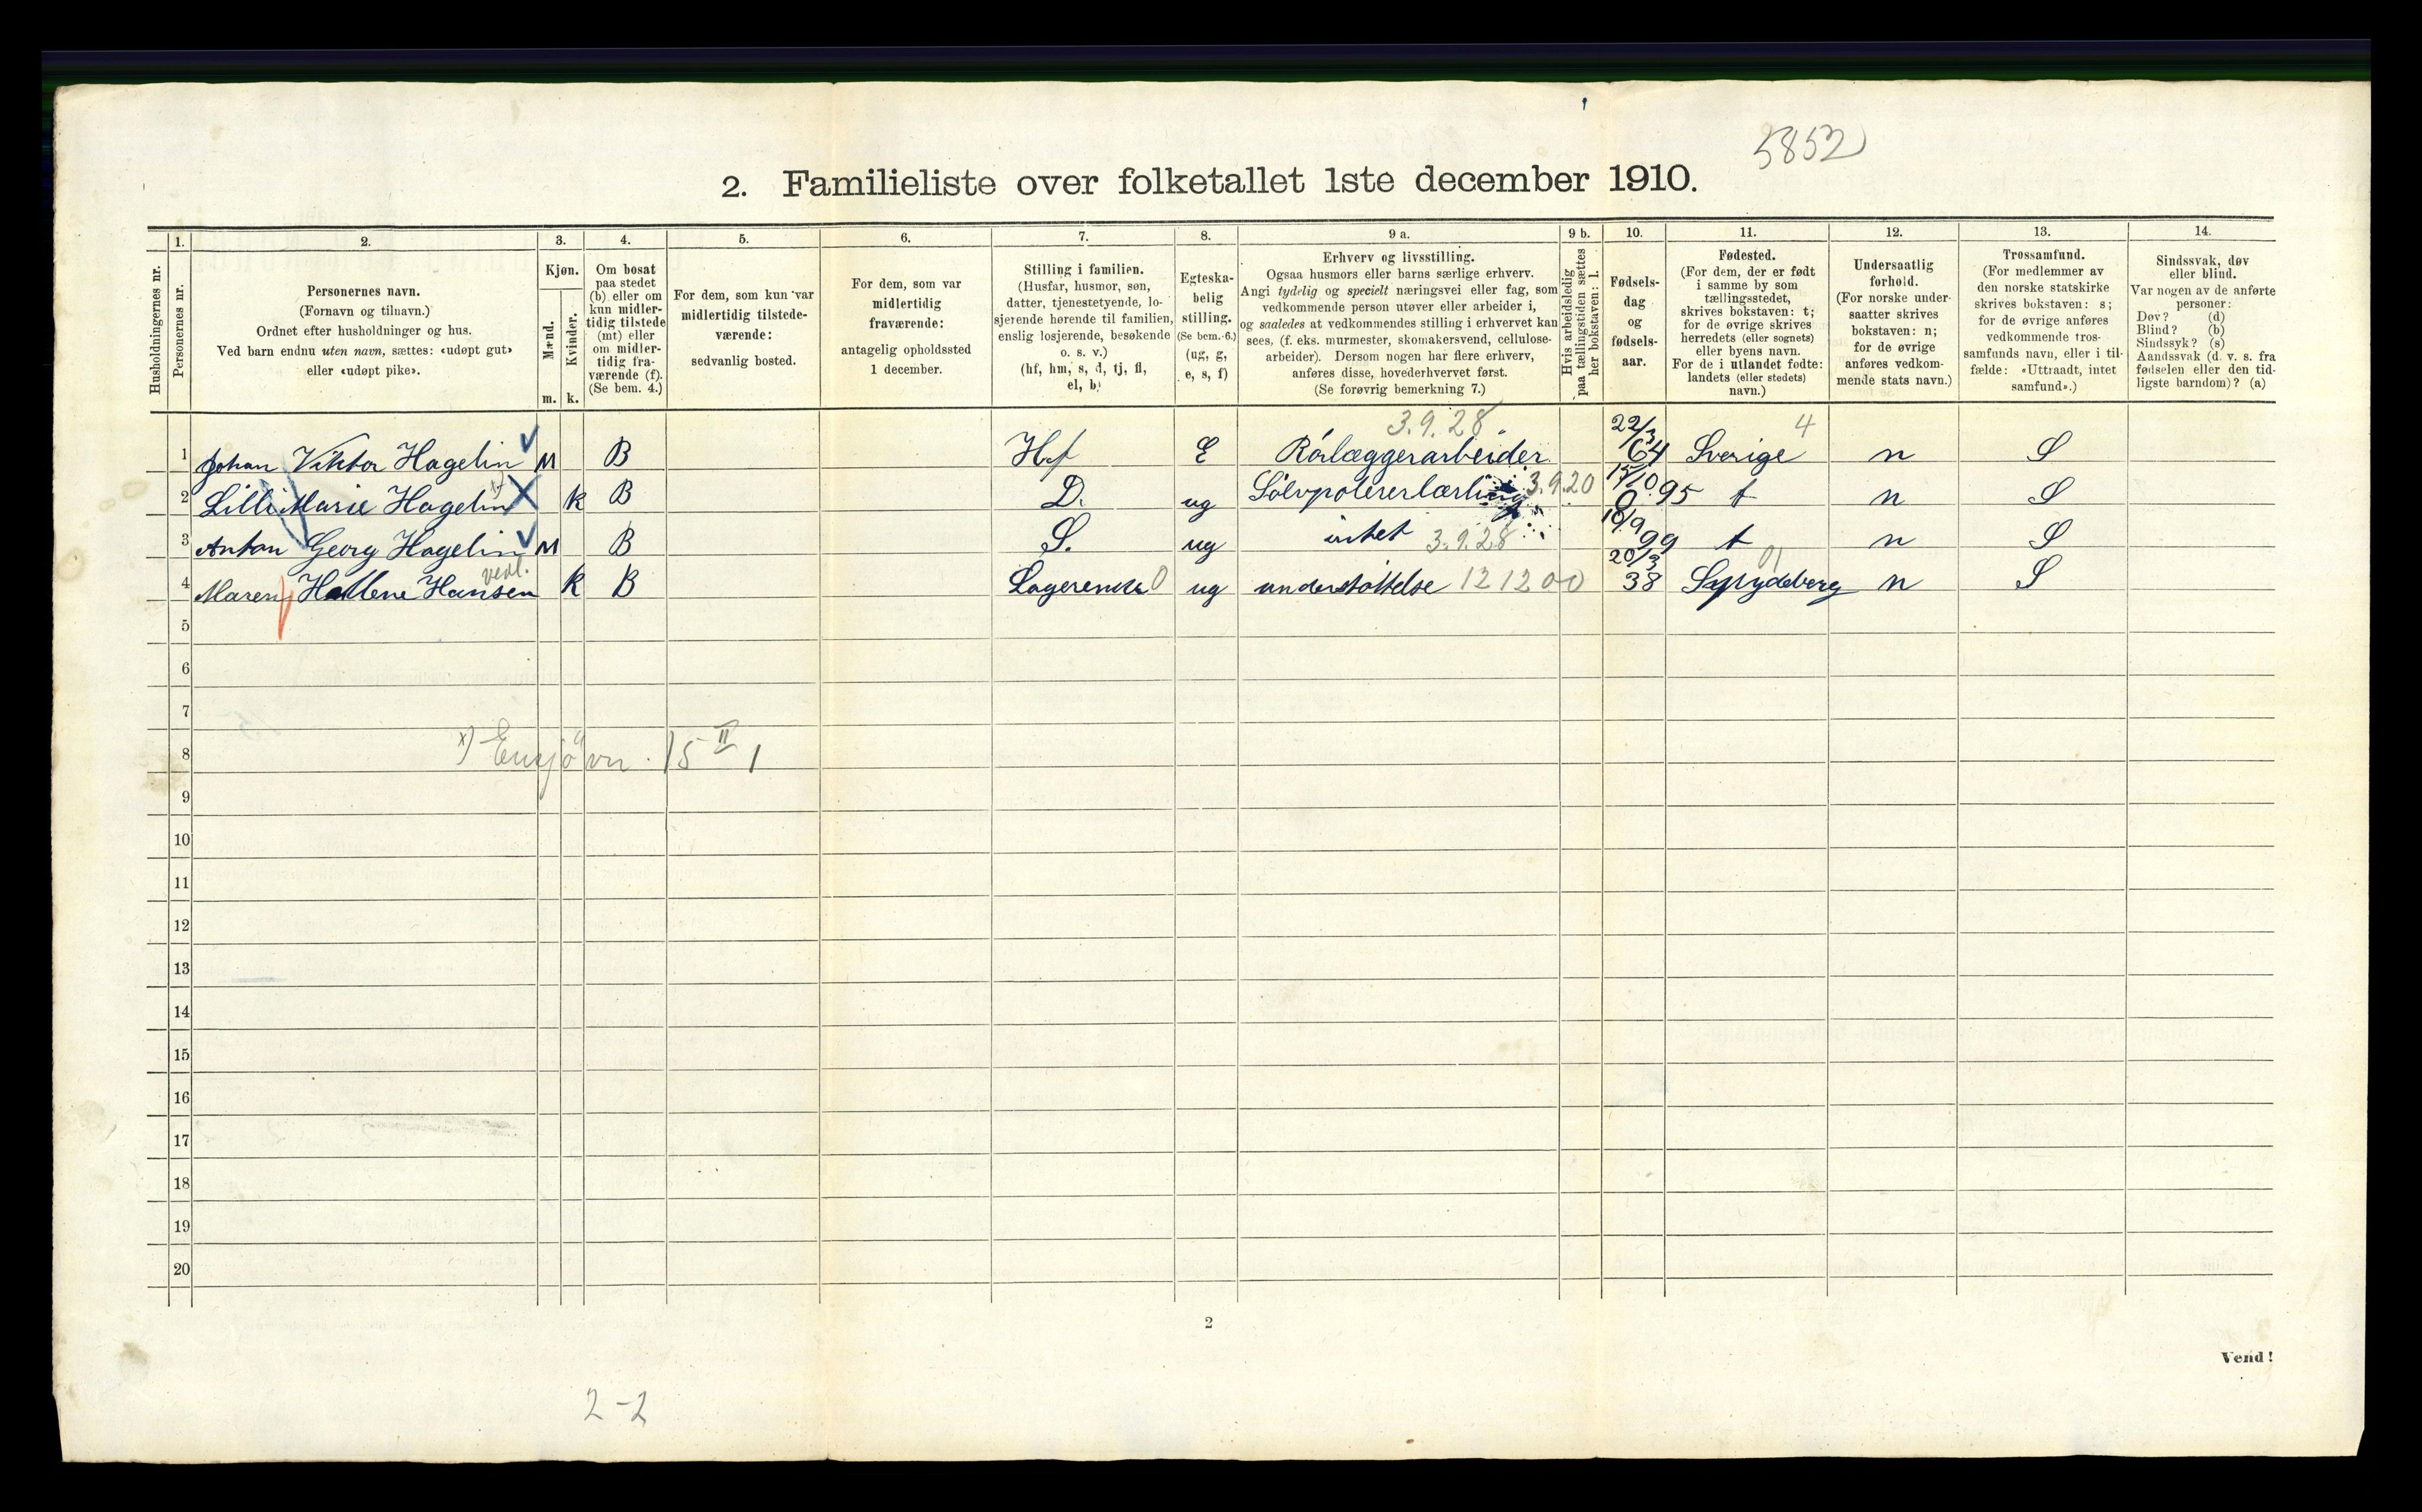 5852
2. Familieliste over folketallet 1ste december 1910.
Husholdningernes nr.
1. Personernes nr.
2. Personernes navn.
(Fornavn og tilnavn.)
Ordnet efter husholdninger og hus.
Ved barn endnu uten navn, sættes: «udøpt gut»
eller «udøpt pike».
3. Kjøn.
Mænd. m.
Kvinder. k.
4. Om bosat
paa stedet
(b) eller om
kun midler-
tidig tilstede
(mt) eller
om midler-
tidig fra-
værende (f).
(Se bem. 4.)
5. For dem, som kun var
midlertidig tilstede-
værende:
sedvanlig bosted.
6. For dem, som var
midlertidig
fraværende:
antagelig opholdssted
1 december.
7. Stilling i familien.
(Husfar, husmor, søn,
datter, tjenestetyende, lo-
sjerende hørende til familien,
enslig losjerende, besøkende
o. s. v.)
(hf, hm, s, d, tj, fl,
el, b)
8. Egteska-
belig
stilling.
(Se bem. 6.)
(ug, g,
e, s, f)
9 a. Erhverv og livsstilling.
Ogsaa husmors eller barns særlige erhverv.
Angi tydelig og specielt næringsvei eller fag, som
vedkommende person utøver eller arbeider i,
og saaledes at vedkommendes stilling i erhvervet kan
sees, (f. eks. murmester, skomakersvend, cellulose-
arbeider). Dersom nogen har flere erhverv,
anføres disse, hovederhvervet først.
(Se forøvrig bemerkning 7.)
9 b. Hvis arbeidsledig
paa tællingstiden sættes
her bokstaven: l.
10. Fødsels-
dag
og
fødsels-
aar.
11. Fødested.
(For dem, der er født
i samme by som
tællingsstedet,
skrives bokstaven: t;
for de øvrige skrives
herredets (eller sognets)
eller byens navn.
For de i utlandet fødte:
landets (eller stedets)
navn.)
12. Undersaatlig
forhold.
(For norske under-
saatter skrives
bokstaven: n;
for de øvrige
anføres vedkom-
mende stats navn.)
13. Trossamfund.
(For medlemmer av
den norske statskirke
skrives bokstaven: s;
for de øvrige anføres
vedkommende tros-
samfunds navn, eller i til-
fælde: «Uttraadt, intet
samfund».)
14. Sindssvak, døv
eller blind.
Var nogen av de anførte
personer:
Døv? (d)
Blind? (b)
Sindssyk? (s)
Aandssvak (d. v. s. fra
fødselen eller den tid-
ligste barndom)? (a)
3.9.28 22/3 4
1 Johan Viktor Hagelin M B Hf E Rörlæggerarbeider 64 Sverige n S
2 Lilli Marie Hagelin x) k B D. ug Sölvpolererlærling 3.9.20 15/10 95 t n S
3 Anton Georg Hagelin M B S. ug intet 3.9.28 10/9 99 t n S
4 Maren Hellene Hansen k B Logerende 0 ug understøttelse 121200 20/3 38 Spydeberg 01 n S
5
6
7
8 x) Ensjövn. 15 II 1
9
10
11
12
13
14
15
16
17
18
19
20
2
Vend!
2-2